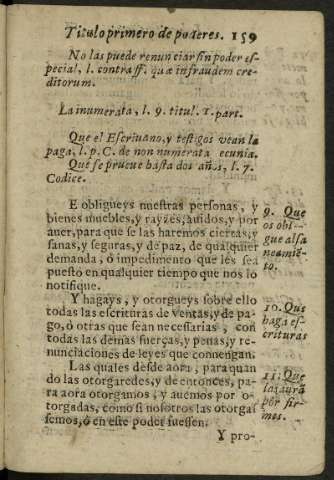 Titulo primero de poderes. 159
No las puede renunciar sin poder es-
pecial, l. contra ff. quæ in fraudem cre-
ditorum.
La inumerata, l. 9. titul. 1. part.
Que el Escriuano, y testigos vean la
paga, l. p. C. de non numerata ecunia.
Que se prueue hasta dos años, l. 7.
Codice.
E obligueys nuestras personas, y
bienes muebles, y rayzes, auidos, y por
auer, para que se las haremos ciertas, y
sanas, y seguras, y de paz, de qualquier
demanda, ó impedimento que les sea
puesto en qualquier tiempo que nos lo
notifique.
9. Que
os obli-
gue al sa
neamiē-
to.
Y hagays, y otorgueys sobre ello
todas las escrituras de ventas, y de pa-
go, ó otras que sean necessarias, con
todas las demas fuerças, y penas, y re-
nunciaciones de leyes que conuengan.
10. Que
haga es-
crituras
Las quales desde aora, para quan
do las otorgaredes, y de entonces, pa-
ra aora otorgamos, y auemos por o-
torgadas, como si nosotros las otorgas
semos, ó en este poder fuessen.
11. Que
las aurá
por fir-
mes.
Y pro-